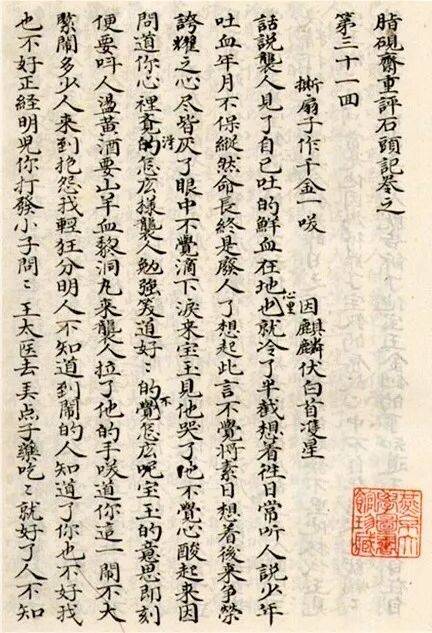 脂硯齋重評石頭記卷之
第三十一回
撕扇子作千金一笑
因麒麟伏白首雙星
話說襲人見了自己吐的鮮血在地也就冷了半截想着徃日常听人說少年
心里
吐血年月不保縱然命長終是廢人了想起此言不覺將素日想着後來争榮
誇耀之心尽皆灰了眼中不覺滴下淚来宝玉見他哭了也不覺心酸起来因
問道你心裡的怎庅樣襲人勉強笑道好〻的覺怎庅呢宝玉的意思即刻
不
便要呌人溫黃酒要山羊血黎洞丸来襲人拉了他的手咲道你這一鬧不大
繁鬧多少人来到抱怨我輕狂分明人不知道到鬧的人知道了你也不好我
也不好正経明児你打發小子問〻王太医去弄点子藥吃〻就好了人不知